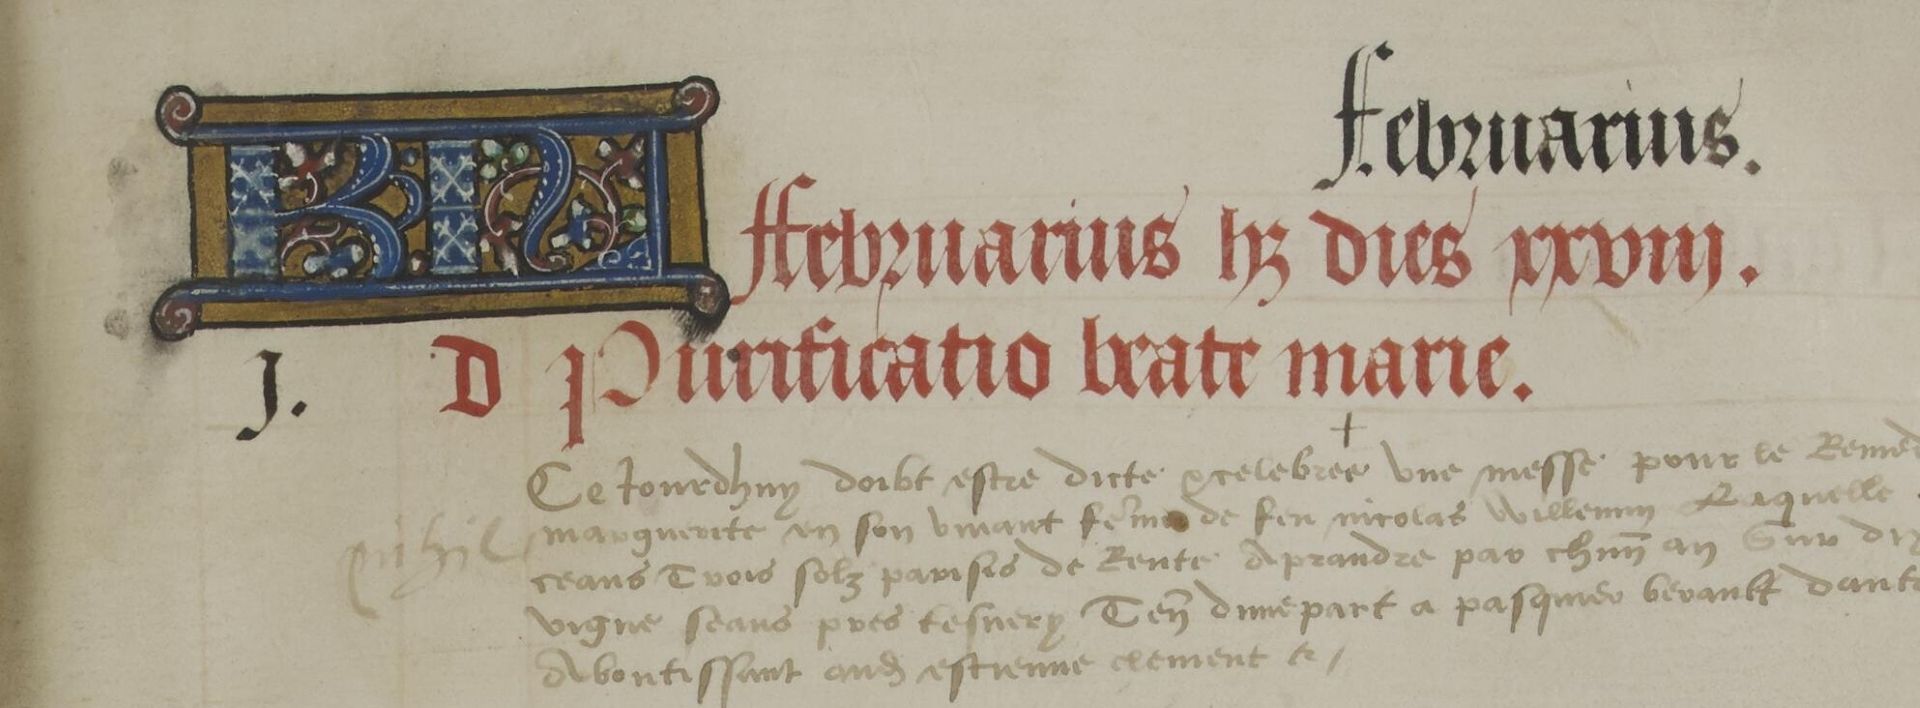 februarius.
KL
februarius hꝫ dies xxviij.
j. D Purificatio beate marie.
Ce Jourdhuy doibt estre dicte & celebree une messe pour le Remed
nihil
marguerite en son vivant feme de feu nicolas Willemin Laquelle
ceans Trois solz parisis de Rente A prandre par chun an Sur
vigne seans pres Ten dunepart a pasquier
Aboutissant aud estienne clement &c